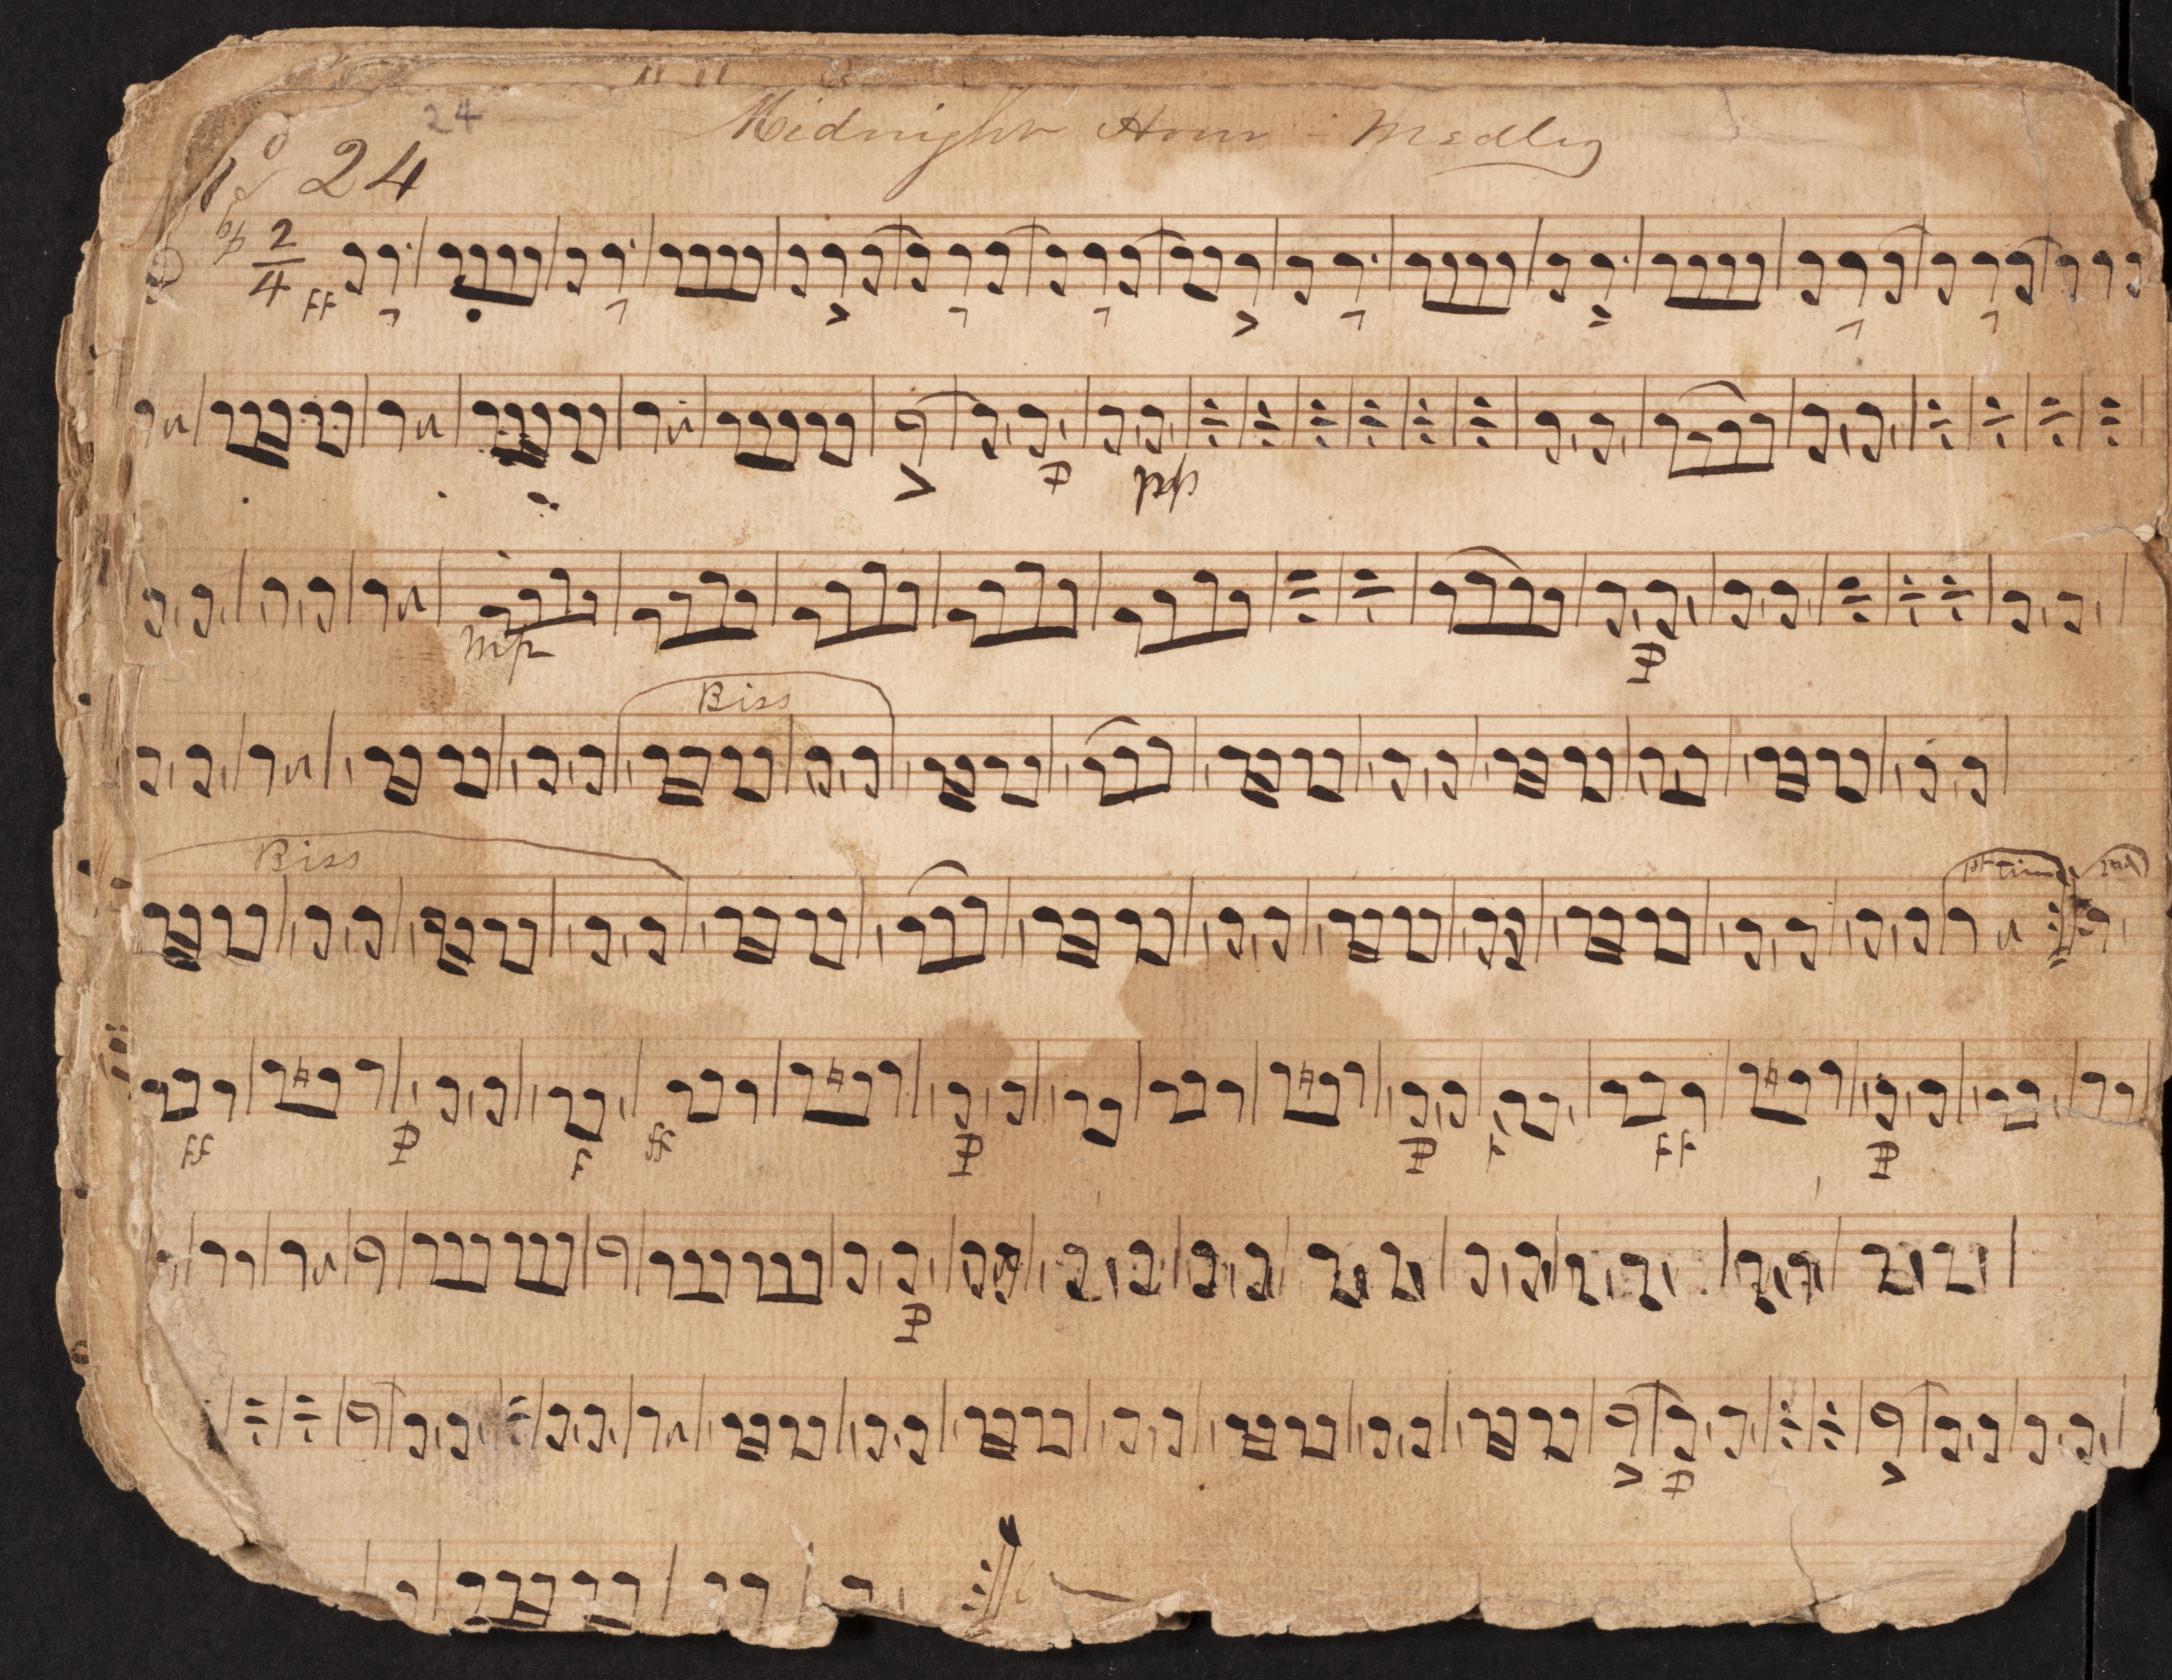 24
Midnight Hour - Medley
No 24
2/4
ff
P
mp
P
Biss
Biss
1st time 2nd
ff P F ff P P F FF P
P
P